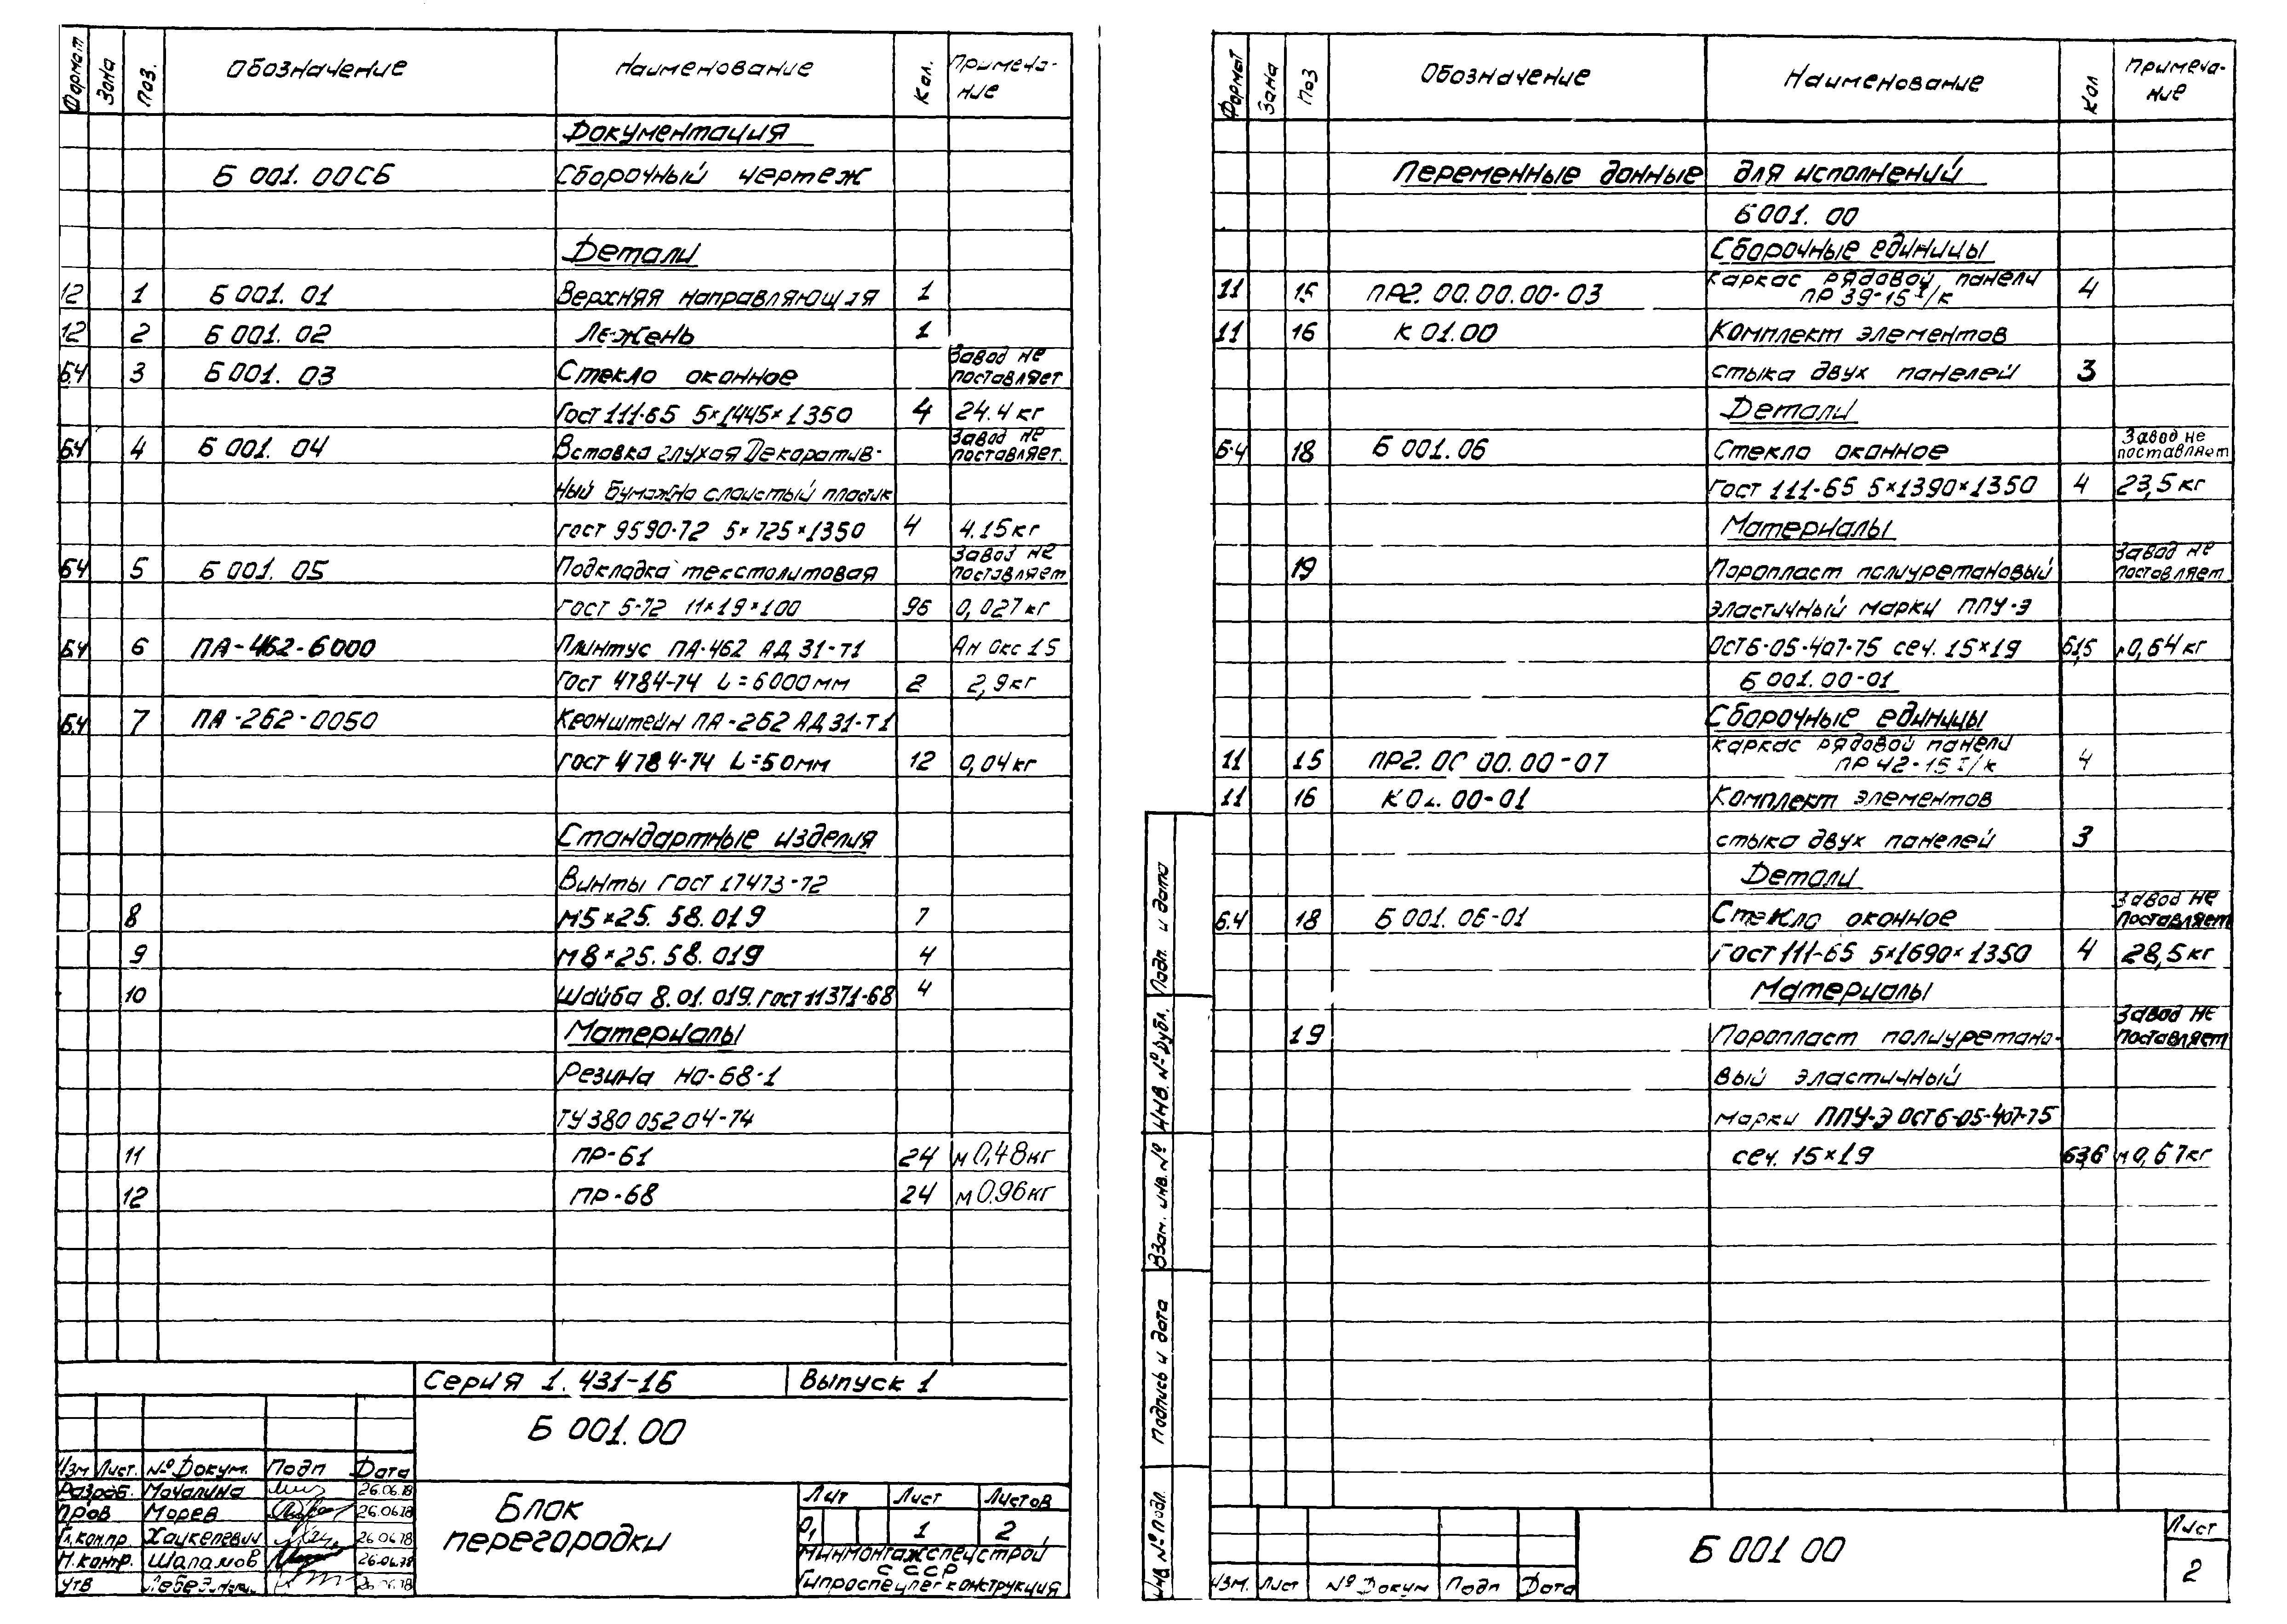 Формат Зона Поз. Обозначение Наименование Кол. Примечание
Документация
Б 001. 00СБ Сборочный чертеж
Детали
12 1 Б 001. 01 Верхняя направляющая 1
12 2 Б 001. 02 Лежень 1
Б4 3 Б 001. 03 Стекло оконное Завод не поставляет
Гост 111-65 5×1445×1350 4 24.4 кг
Б4 4 Б 001. 04 Вставка глухая Декоратив- Завод не поставляет.
ный бумажно слоистый пластик
гост 9590-72 5×725×1350 4 4.15кг
Б4 5 Б 001. 05 Подкладка текстолитовая Завод не поставляет
гост 5-72 11×19×100 96 0,027 кг
Б4 6 ПА-462-6000 Плинтус ПА-462 АД 31-Т1 Ан Окс 15
Гост 4784-74 L=6000мм 2 2,9кг
Б4 7 ПА-262-0050 Кронштейн ПА-262 АД31-Т1
гост 4784-74 L=50мм 12 0,04кг
Стандартные изделия
Винты гост 17473-72
8 М5×25. 58. 019 7
9 М8×25. 58. 019 4
10 Шайба 8.01.019. гост 11371-68 4
Материалы
Резина но-68-1
ТУ380 052 04-74
11 ПР-61 24 м 0,48кг
12 ПР-68 24 м 0.96кг
Серия 1. 431-16 Выпуск 1
Б 001.00
Изм Лист. № Докум. Подп Дата
Разраб. Мочалина 26.06.78
Пров Морев 26.06.78
Гл.кон.пр. Хацкелевич 26.06.78
Н.контр. Шаламов 26.06.78
Утв 26.06.78
Блок
перегородки
Лит Лист Листов
1 2
Минмонтажспецстрой
СССР
Гипроспецлегконструкция
Формат Зона Поз Обозначение Наименование Кол Примечание
Переменные данные для исполнений
Б 001. 00
Сборочные единицы
11 15 ПР2. 00.00.00-03 Каркас рядовой панели ПР 39-15 I/к 4
11 16 К 01.00 Комплект элементов
стыка двух панелей 3
Детали
Б.4 18 Б 001. 06 Стекло оконное Завод не поставляет
гост 111-65 5×1390×1350 4 23,5 кг
Материалы
19 Поропласт полиуретановый Завод не поставляет
эластичный марки ППУ-Э
ОСТ6-05-407-75 сеч. 15×19 61,5 м 0,64 кг
Б 001.00-01
Сборочные единицы
11 15 ПР2. 00 00.00-07 Каркас рядовой панели ПР 42-15 I/к 4
11 16 К 01. 00-01 Комплект элементов
стыка двух панелей 3
Детали
Б.4 18 Б 001. 06-01 Стекло оконное Завод не поставляет
Гост 111-65 5×1690×1350 4 28,5 кг
Материалы
19 Поропласт полиуретано- Завод не поставляет
вый эластичный
марки ППУ-Э ОСТ6-05-407-75
сеч. 15×19 63,6 м 0,67кг
Инв № подл. Подпись и дата Взам. инв. № Инв. № дубл. Подп. и дата
Изм. Лист № Докум Подп Дата
Б 001 00
Лист
2